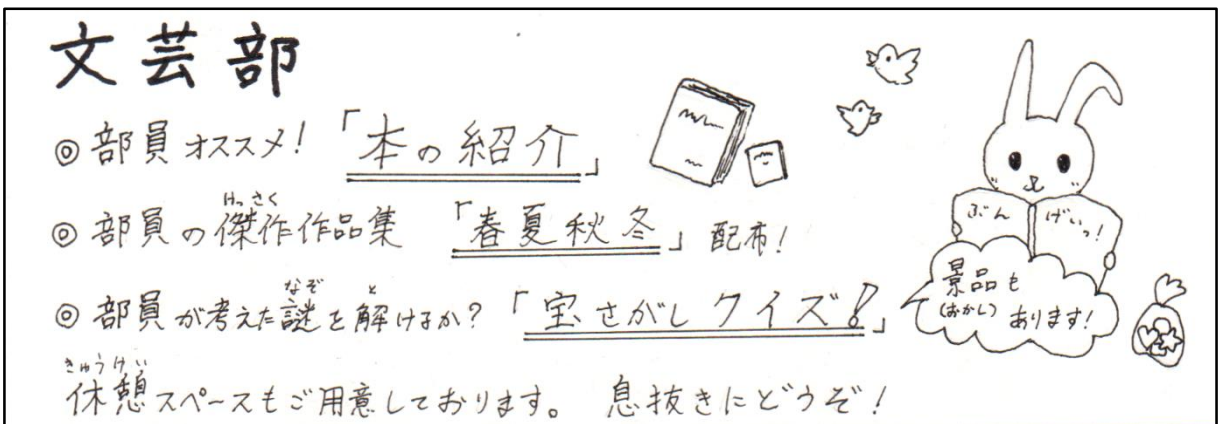 文芸部
◎部員オススメ!「本の紹介」
けっさく
◎部員の傑作作品集「春夏秋冬」配布!
なぞ と
◎部員が考えた謎を解けるか?「宝さがしクイズ!」
きゅうけい
休憩スペースもご用意しております。 息抜きにどうぞ!
ぶん げいっ!
景品も
(おかし) あります!